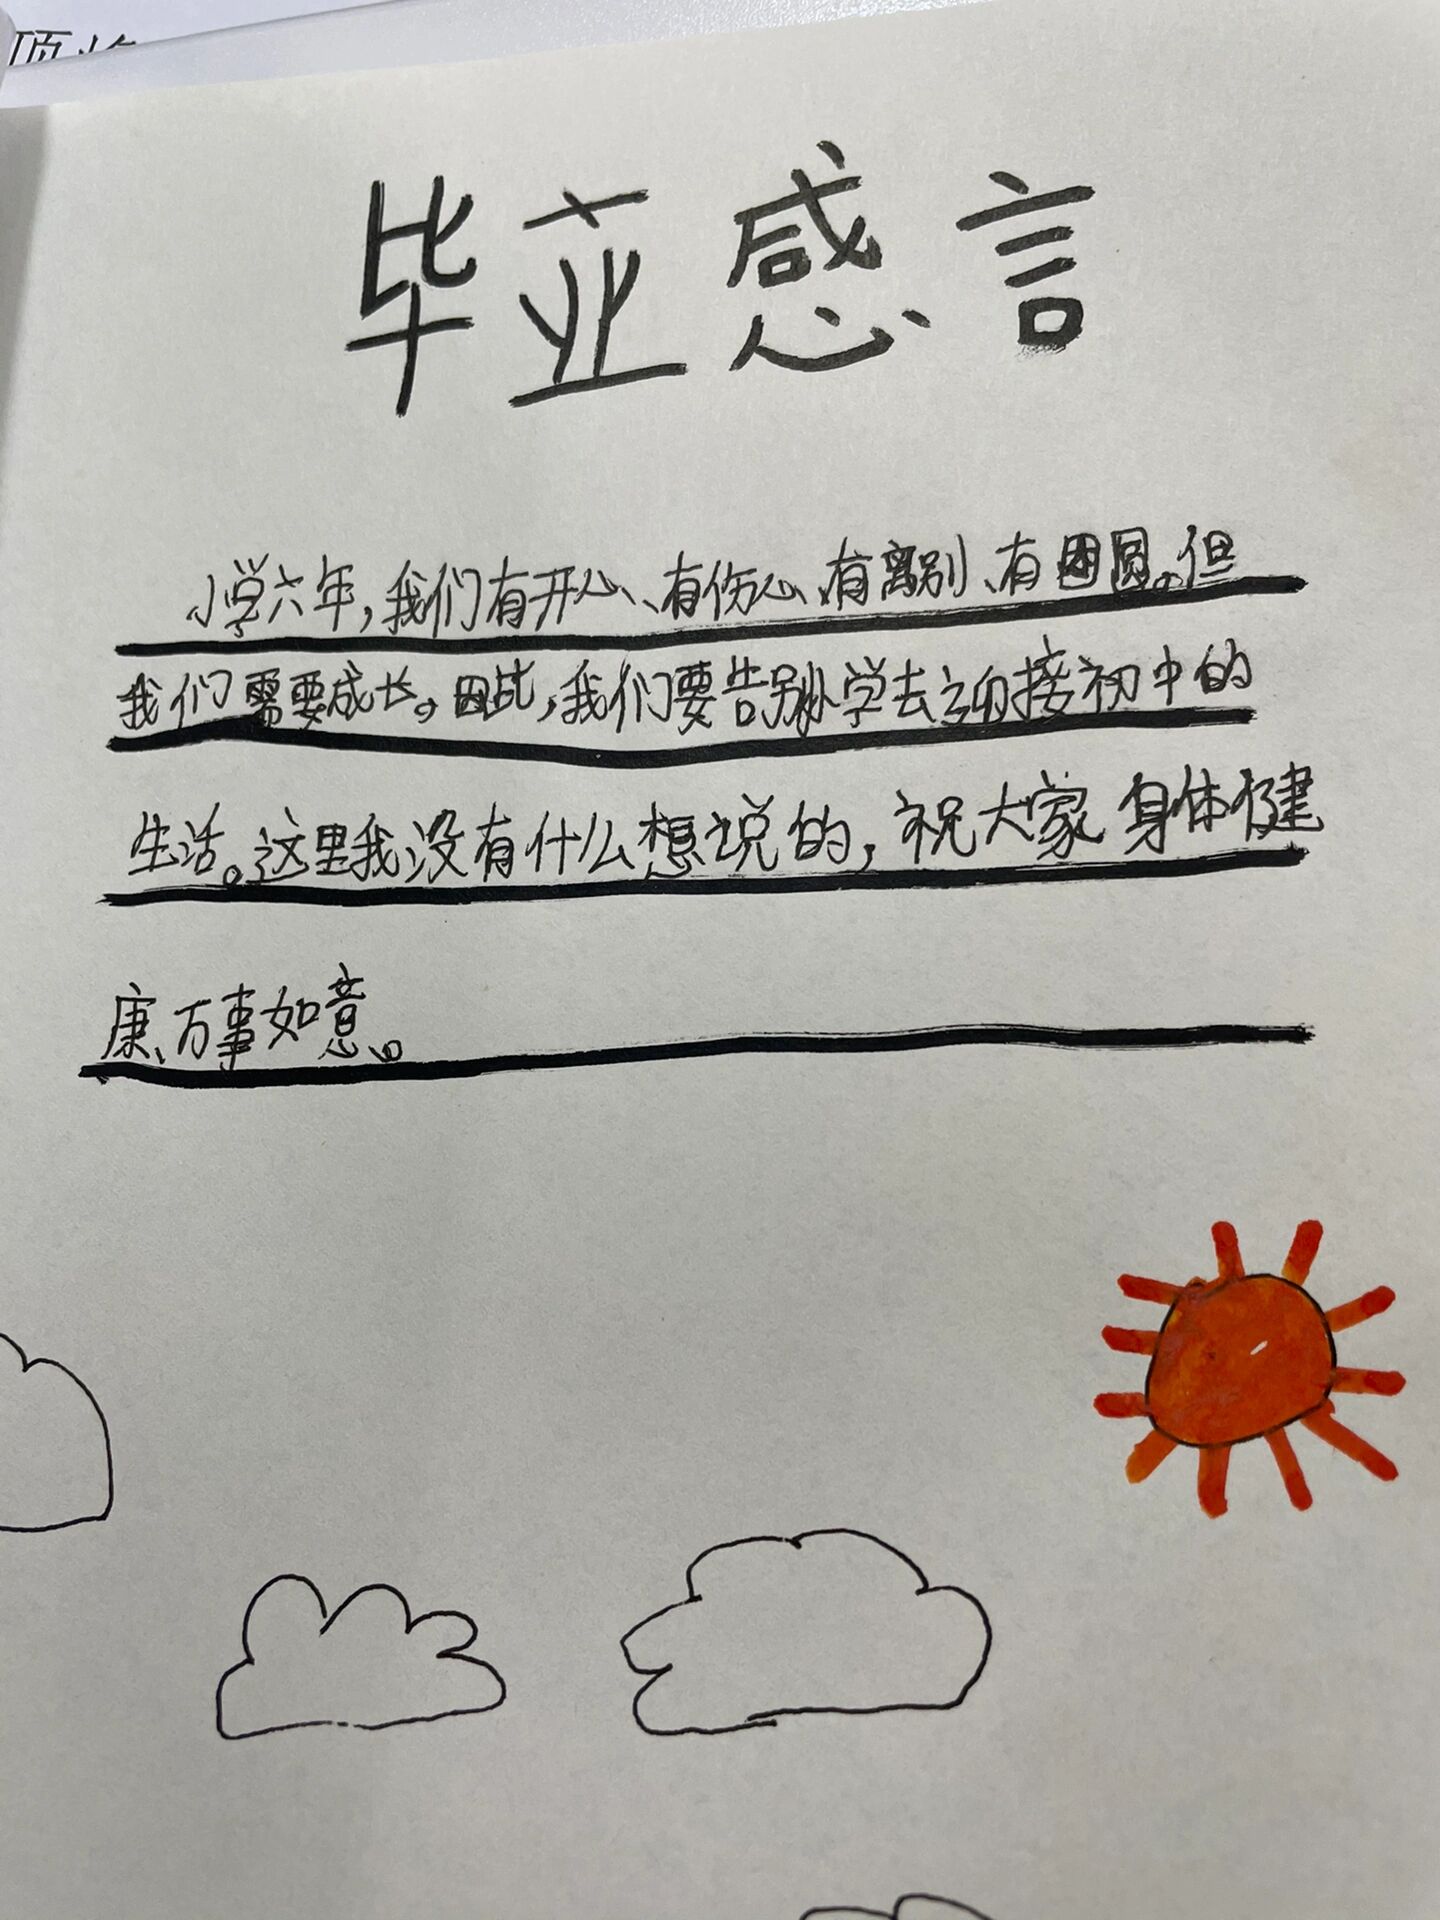 毕业感言
小学六年,我们有开心、有伤心、有离别、有团圆。但
我们需要成长。因此,我们要告别小学去迎接初中的
生活。这里我没有什么想说的,祝大家身体健
康、万事如意。